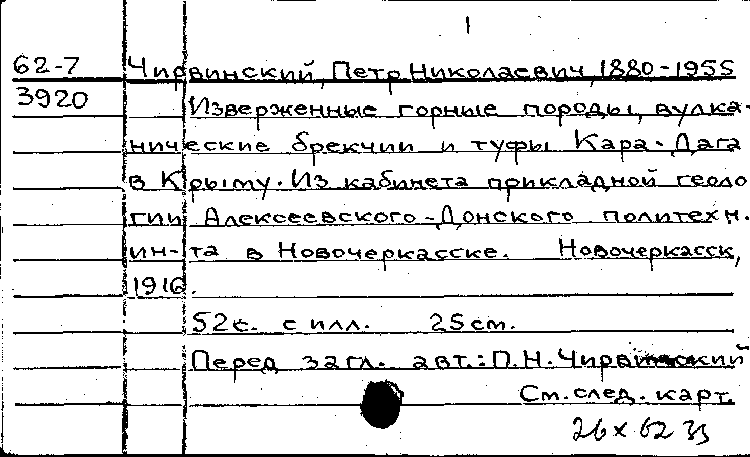 1
62-7 Чирвинский, Петр Николаевич, 1880-1955
3920 Изверженные горные породы, вулка-
нические брекчии и туфы Кара-Дага
в Крыму. Из кабинета прикладной геоло
гии Алексеевского-Донского политехн.
ин-та в Новочеркасске. Новочеркасск,
1916.
52с. с илл. 25см.
Перед загл. авт.: П.Н. Чирвинский
См. след. карт.
26 x 62